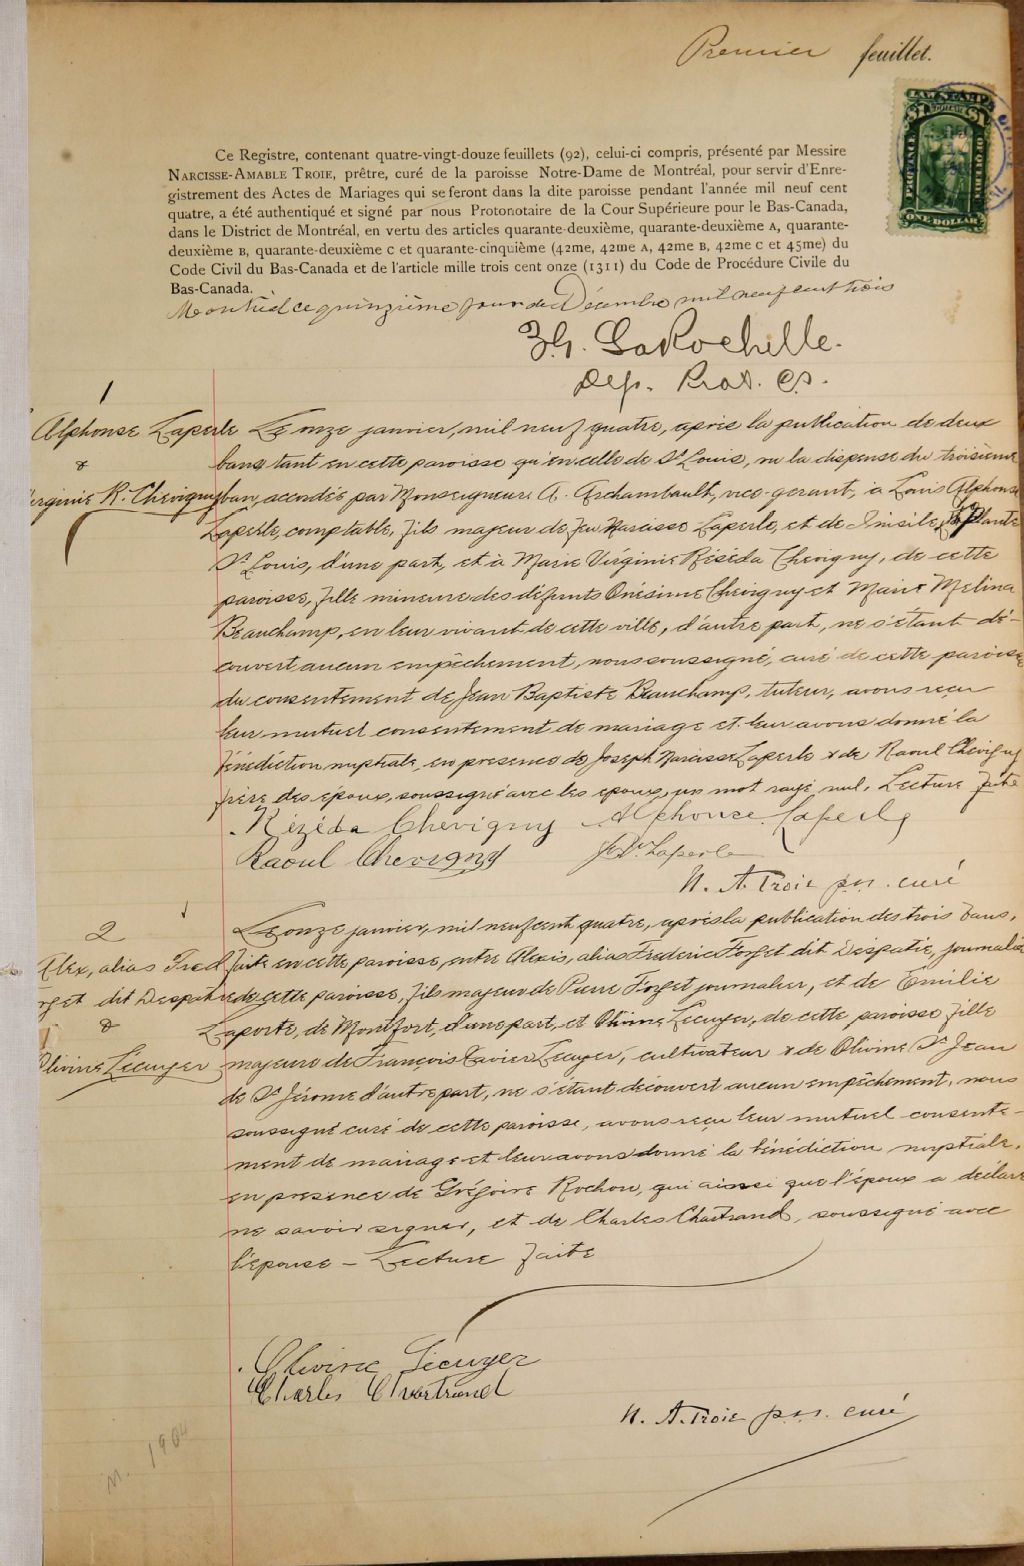 Premier feuillet.
LAW STAMP
ONE DOLLAR
Ce Registre, contenant quatre-vingt-douze feuillets (92), celui-ci compris, présenté par Messire
NARCISSE-AMABLE TROIE, prêtre, curé de la paroisse Notre-Dame de Montréal, pour servir d'Enre-
gistrement des Actes de Mariages qui se feront dans la dite paroisse pendant l'année mil neuf cent
quatre, a été authentiqué et signé par nous Protonotaire de la Cour Supérieure pour le Bas-Canada,
dans le District de Montréal, en vertu des articles quarante-deuxième, quarante-deuxième A, quarante-
deuxième B, quarante-deuxième C et quarante-cinquième (42me, 42me A, 42me B, 42me C et 45me) du
Code Civil du Bas-Canada et de l'article mille trois cent onze (1311) du Code de Procédure Civile du
Bas-Canada.
Montréal ce quinzième jour de Décembre mil neuf cent trois
LaRochelle.
Dep. Prot. C.S.
1
Alphonse Laperle
&
Virginie R. Chevigny
Le onze janvier, mil neuf quatre, après la publication de deux
bans tant en cette paroisse qu'en celle de St Louis, vu la dispense du troisième
ban, accordée par Monseigneur A. Archambault, vice-gérant, à Louis Alphonse
Laperle, comptable, fils majeur de feu Narcisse Laperle, et de
St Louis, d'une part, et à Marie Virginie Réséda Chevigny, de cette
paroisse, fille mineure des défunts Onésime Chevigny et Marie Melina
Beauchamp, en leur vivant de cette ville, d'autre part, ne s'étant dé-
couvert aucun empêchement, nous soussigné, curé de cette paroisse
du consentement de Jean Baptiste Beauchamp, tuteur, avons reçu
leur mutuel consentement de mariage et leur avons donné la
bénédiction nuptiale, en présence de Joseph Narcisse Laperle & de Raoul Chevigny
frère des époux, soussigné avec les époux, un mot rayé nul, Lecture faite
Rézéda Chevigny Alphonse Laperle
Raoul Chevigny Jos. N. Laperle
N. A. Troie p.s.s. curé
2
Alex, alias Fred
Forget dit Despatie
&
Olivine Lécuyer
Le onze janvier, mil neuf cent quatre, après la publication des trois bans,
faite en cette paroisse, entre Alexis, alias Frederic Forget dit Despatie, journalier
de cette paroisse, fils majeur de Pierre Forget journalier, et de Emilie
Laporte, de Montfort, d'une part, et Olivine Lecuyer, de cette paroisse fille
majeure de François Xavier Lecuyer, cultivateur & de Olivine St Jean
de St Jérome d'autre part, ne s'étant découvert aucun empêchement, nous
soussigné curé de cette paroisse, avons reçu leur mutuel consente-
ment de mariage et leur avons donné la bénédiction nuptiale,
en présence de Grégoire Rochon, qui ainsi que l'époux a déclaré
ne savoir signer, et de Charles Chartrand, soussigné avec
l'épouse – Lecture faite
Olivine Lécuyer
Charles Chartrand
N. A. Troie p.s.s. curé
M. 1904